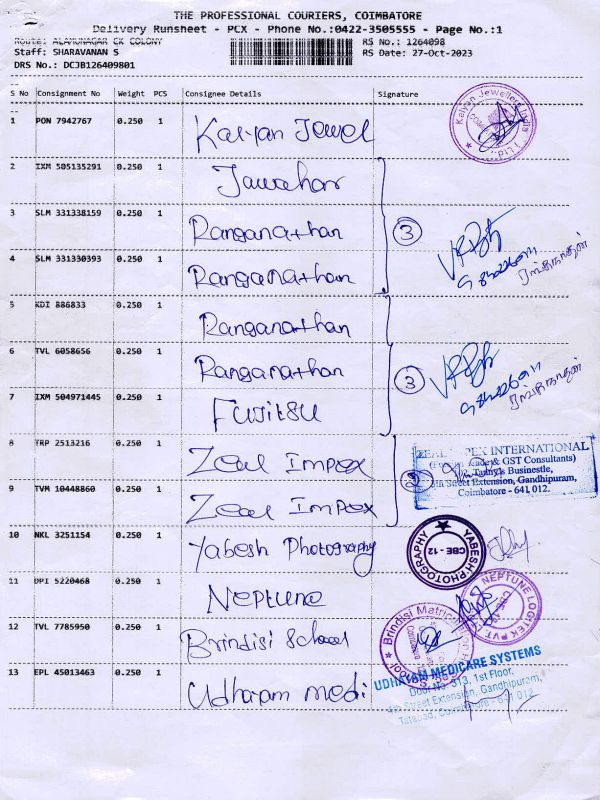 THE PROFESSIONAL COURIERS, COIMBATORE
Delivery Runsheet - PCX - Phone No.:0422-3505555 - Page No.:1
Route: ALAMUNAGAR CK COLONY RS No.: 1264098
Staff: SHARAVANAN S RS Date: 27-Oct-2023
DRS No.: DCJB126409801
S No Consignment No Weight PCS Consignee Details Signature
1 PON 7942767 0.250 1 Kalyan Jewel
Kalyan Jewellers India
2 IXM 505135291 0.250 1 Jawahar
3 SLM 331338159 0.250 1 Ranganathan 3
4 SLM 331330393 0.250 1 Ranganathan
ரங்கநாதன்
5 KDI 886833 0.250 1 Ranganathan
6 TVL 6058656 0.250 1 Ranganathan 3
ரங்கநாதன்
7 IXM 504971445 0.250 1 Fujitsu
8 TRP 2513216 0.250 1 Zeal Impex
9 TVM 10448860 0.250 1 Zeal Impex 2
INTERNATIONAL
& GST Consultants)
Businestle,
Street Extension, Gandhipuram,
Coimbatore - 641 012.
10 NKL 3251154 0.250 1 Yabesh Photography
YABESH PHOTOGRAPHY
CBE - 12
11 DPI 5220468 0.250 1 Neptune
NEPTUNE LOGITEK PVT.
12 TVL 7785950 0.250 1 Brindisi School
Brindisi
13 EPL 45013463 0.250 1 Udhayam medi
UDHAYAM MEDICARE SYSTEMS
Door No. 513, 1st Floor,
Street Extension, Gandhipuram,
Tatabad, 641 012